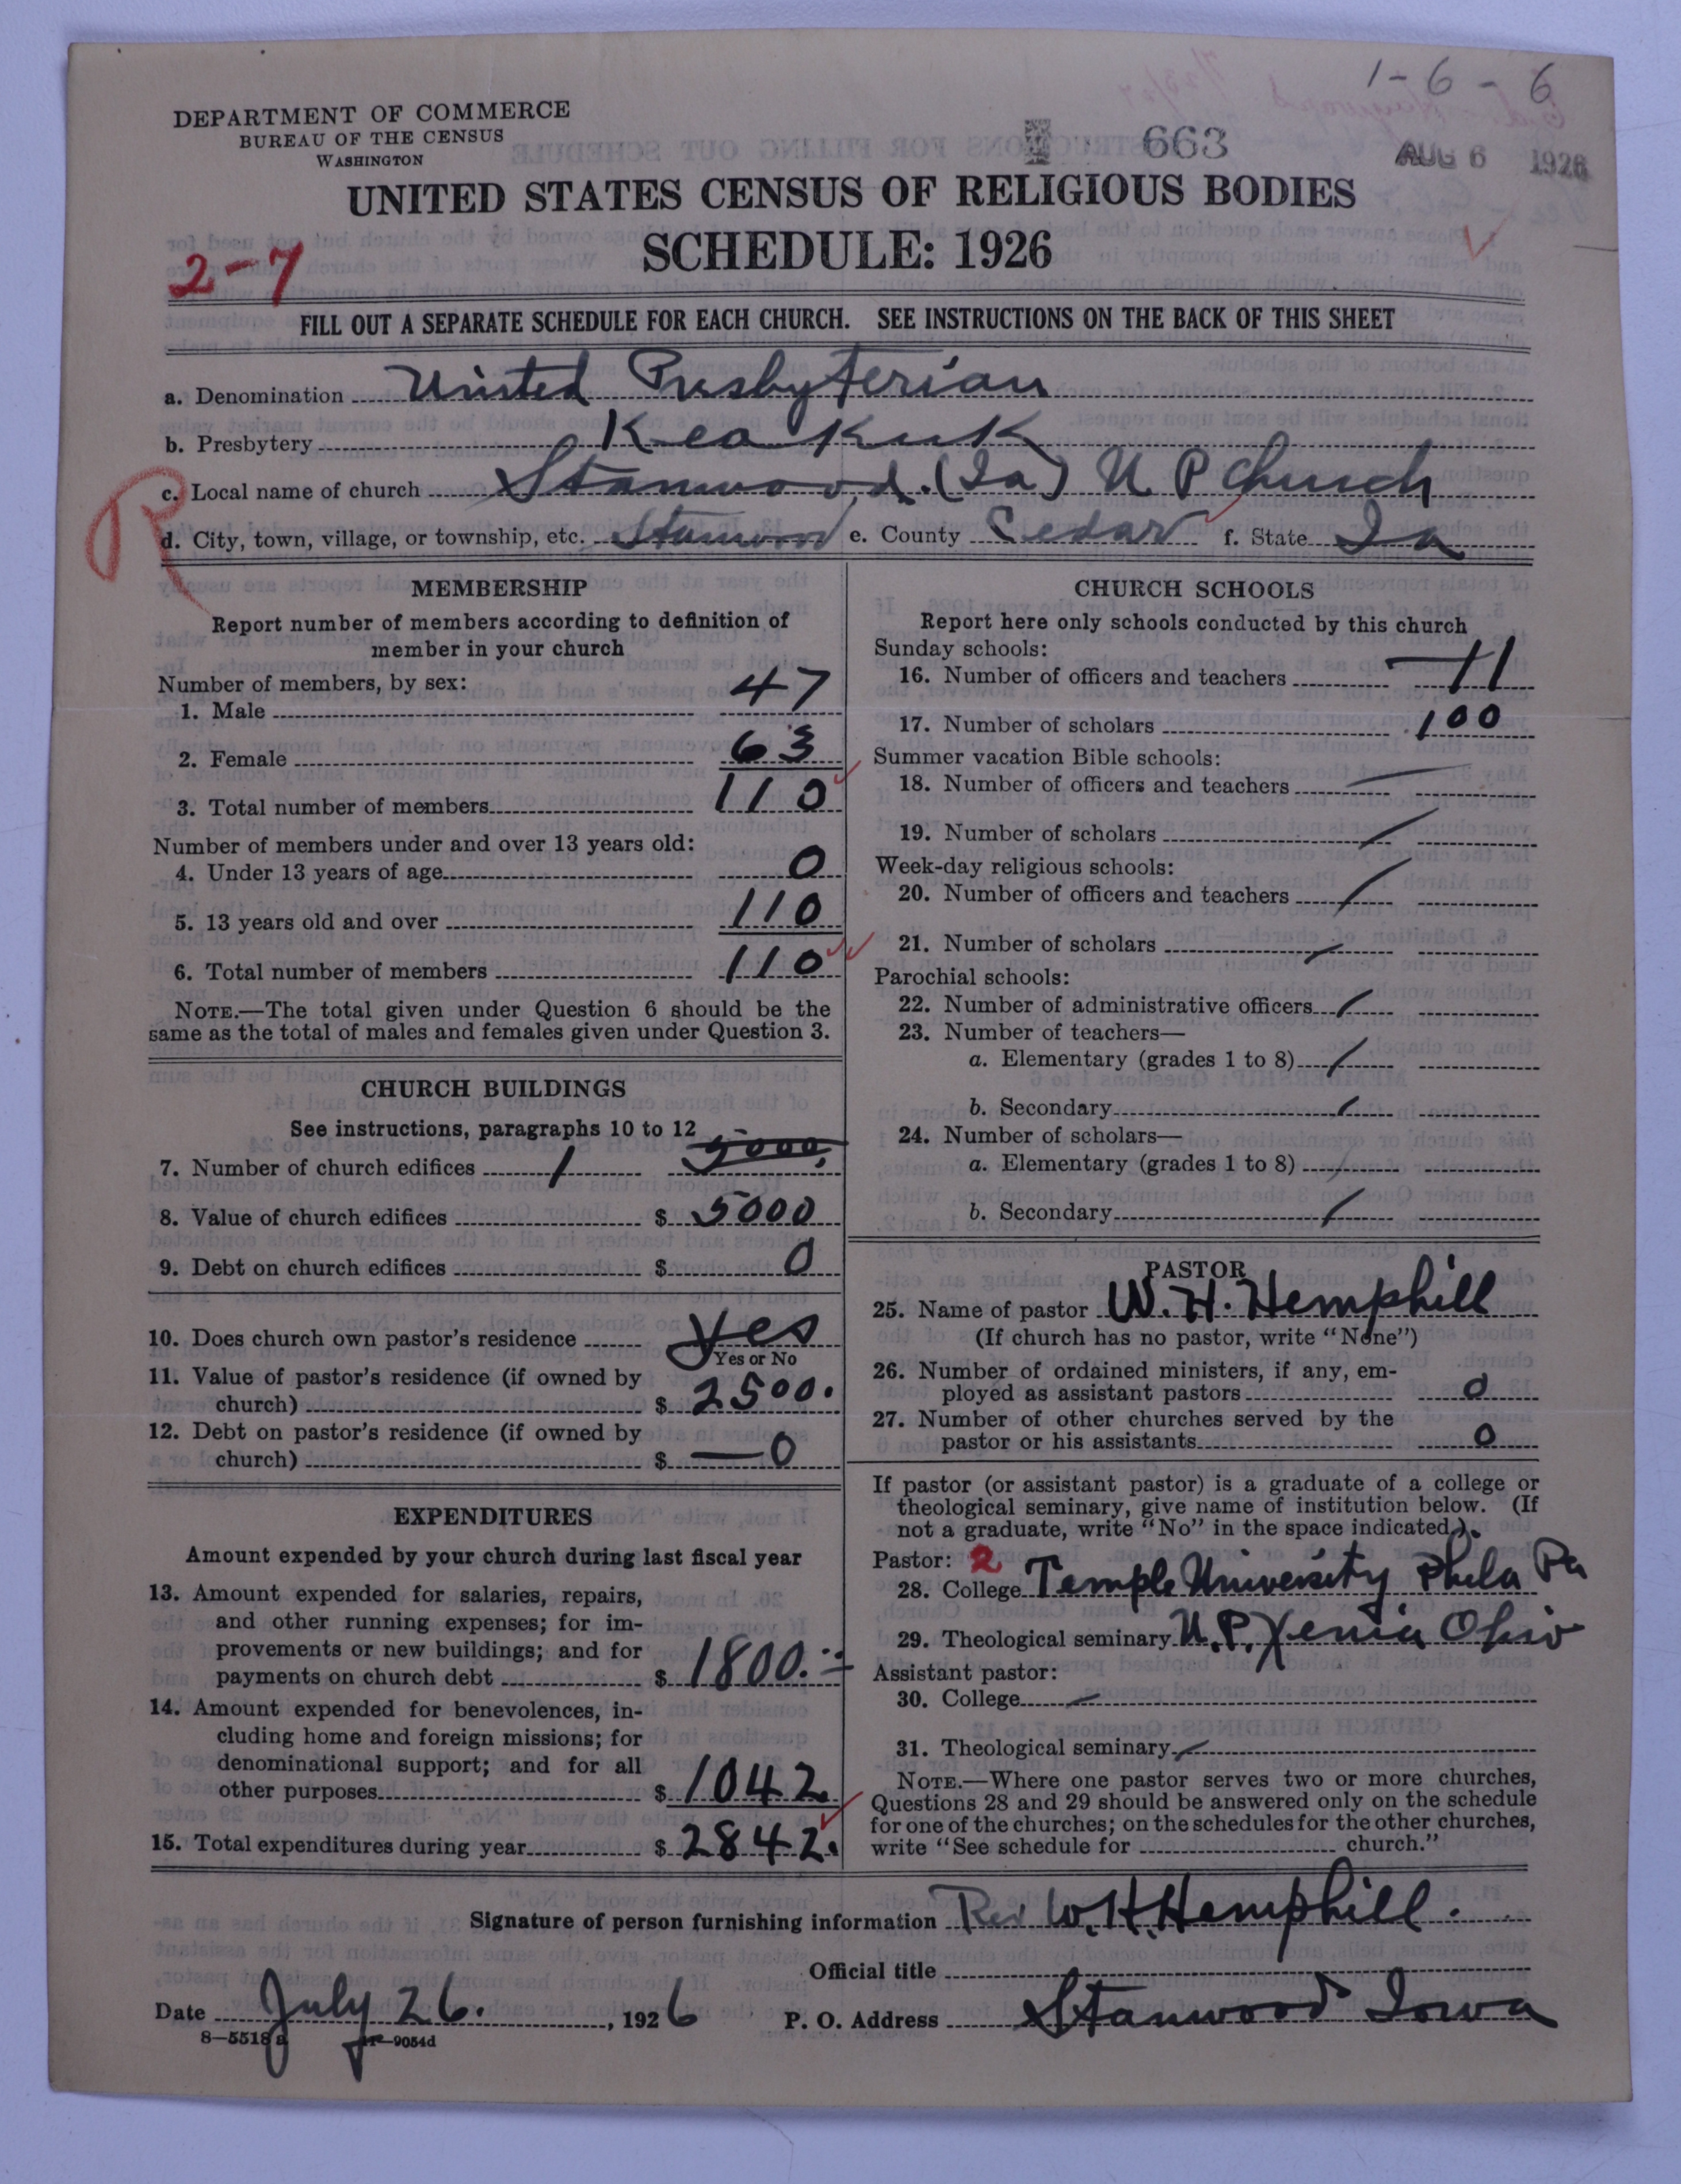 1-6-6
DEPARTMENT OF COMMERCE
BUREAU OF THE CENSUS
WASHINGTON
663
AUG 6 1926
UNITED STATES CENSUS OF RELIGIOUS BODIES
SCHEDULE: 1926
2-7
FILL OUT A SEPARATE SCHEDULE FOR EACH CHURCH. SEE INSTRUCTIONS ON THE BACK OF THIS SHEET
a. Denomination United Presbyterian
b. Presbytery Keokuk
R
c. Local name of church Stanwood. (Ia) U P Church
d. City, town, village, or township, etc. Stanwood e. County Cedar f. State Ia
MEMBERSHIP
Report number of members according to definition of
member in your church
Number of members, by sex:
1. Male 47
2. Female 63
3. Total number of members 110
Number of members under and over 13 years old:
4. Under 13 years of age 0
5. 13 years old and over 110
6. Total number of members 110
NOTE.—The total given under Question 6 should be the
same as the total of males and females given under Question 3.
CHURCH BUILDINGS
See instructions, paragraphs 10 to 12
7. Number of church edifices 1 5000
8. Value of church edifices $ 5000
9. Debt on church edifices $ 0
10. Does church own pastor's residence yes
Yes or No
11. Value of pastor's residence (if owned by
church) $ 2500.
12. Debt on pastor's residence (if owned by
church) $ — 0
EXPENDITURES
Amount expended by your church during last fiscal year
13. Amount expended for salaries, repairs,
and other running expenses; for im-
provements or new buildings; and for
payments on church debt $ 1800.
14. Amount expended for benevolences, in-
cluding home and foreign missions; for
denominational support; and for all
other purposes $ 1042
15. Total expenditures during year $ 2842.
CHURCH SCHOOLS
Report here only schools conducted by this church
Sunday schools:
16. Number of officers and teachers 11
17. Number of scholars 100
Summer vacation Bible schools:
18. Number of officers and teachers
19. Number of scholars
Week-day religious schools:
20. Number of officers and teachers
21. Number of scholars
Parochial schools:
22. Number of administrative officers
23. Number of teachers—
a. Elementary (grades 1 to 8)
b. Secondary
24. Number of scholars—
a. Elementary (grades 1 to 8)
b. Secondary
PASTOR
25. Name of pastor W. H. Hemphill
(If church has no pastor, write "None")
26. Number of ordained ministers, if any, em-
ployed as assistant pastors 0
27. Number of other churches served by the
pastor or his assistants 0
If pastor (or assistant pastor) is a graduate of a college or
theological seminary, give name of institution below. (If
not a graduate, write "No" in the space indicated.)
Pastor: 2
28. College Temple University Phila Pa
29. Theological seminary U. P. Xenia Ohio
Assistant pastor:
30. College
31. Theological seminary
NOTE.—Where one pastor serves two or more churches,
Questions 28 and 29 should be answered only on the schedule
for one of the churches; on the schedules for the other churches,
write "See schedule for church."
Signature of person furnishing information Rev W. H. Hemphill.
Official title
Date July 26. , 1926 P. O. Address Stanwood Iowa
8—5518a 11—9054d